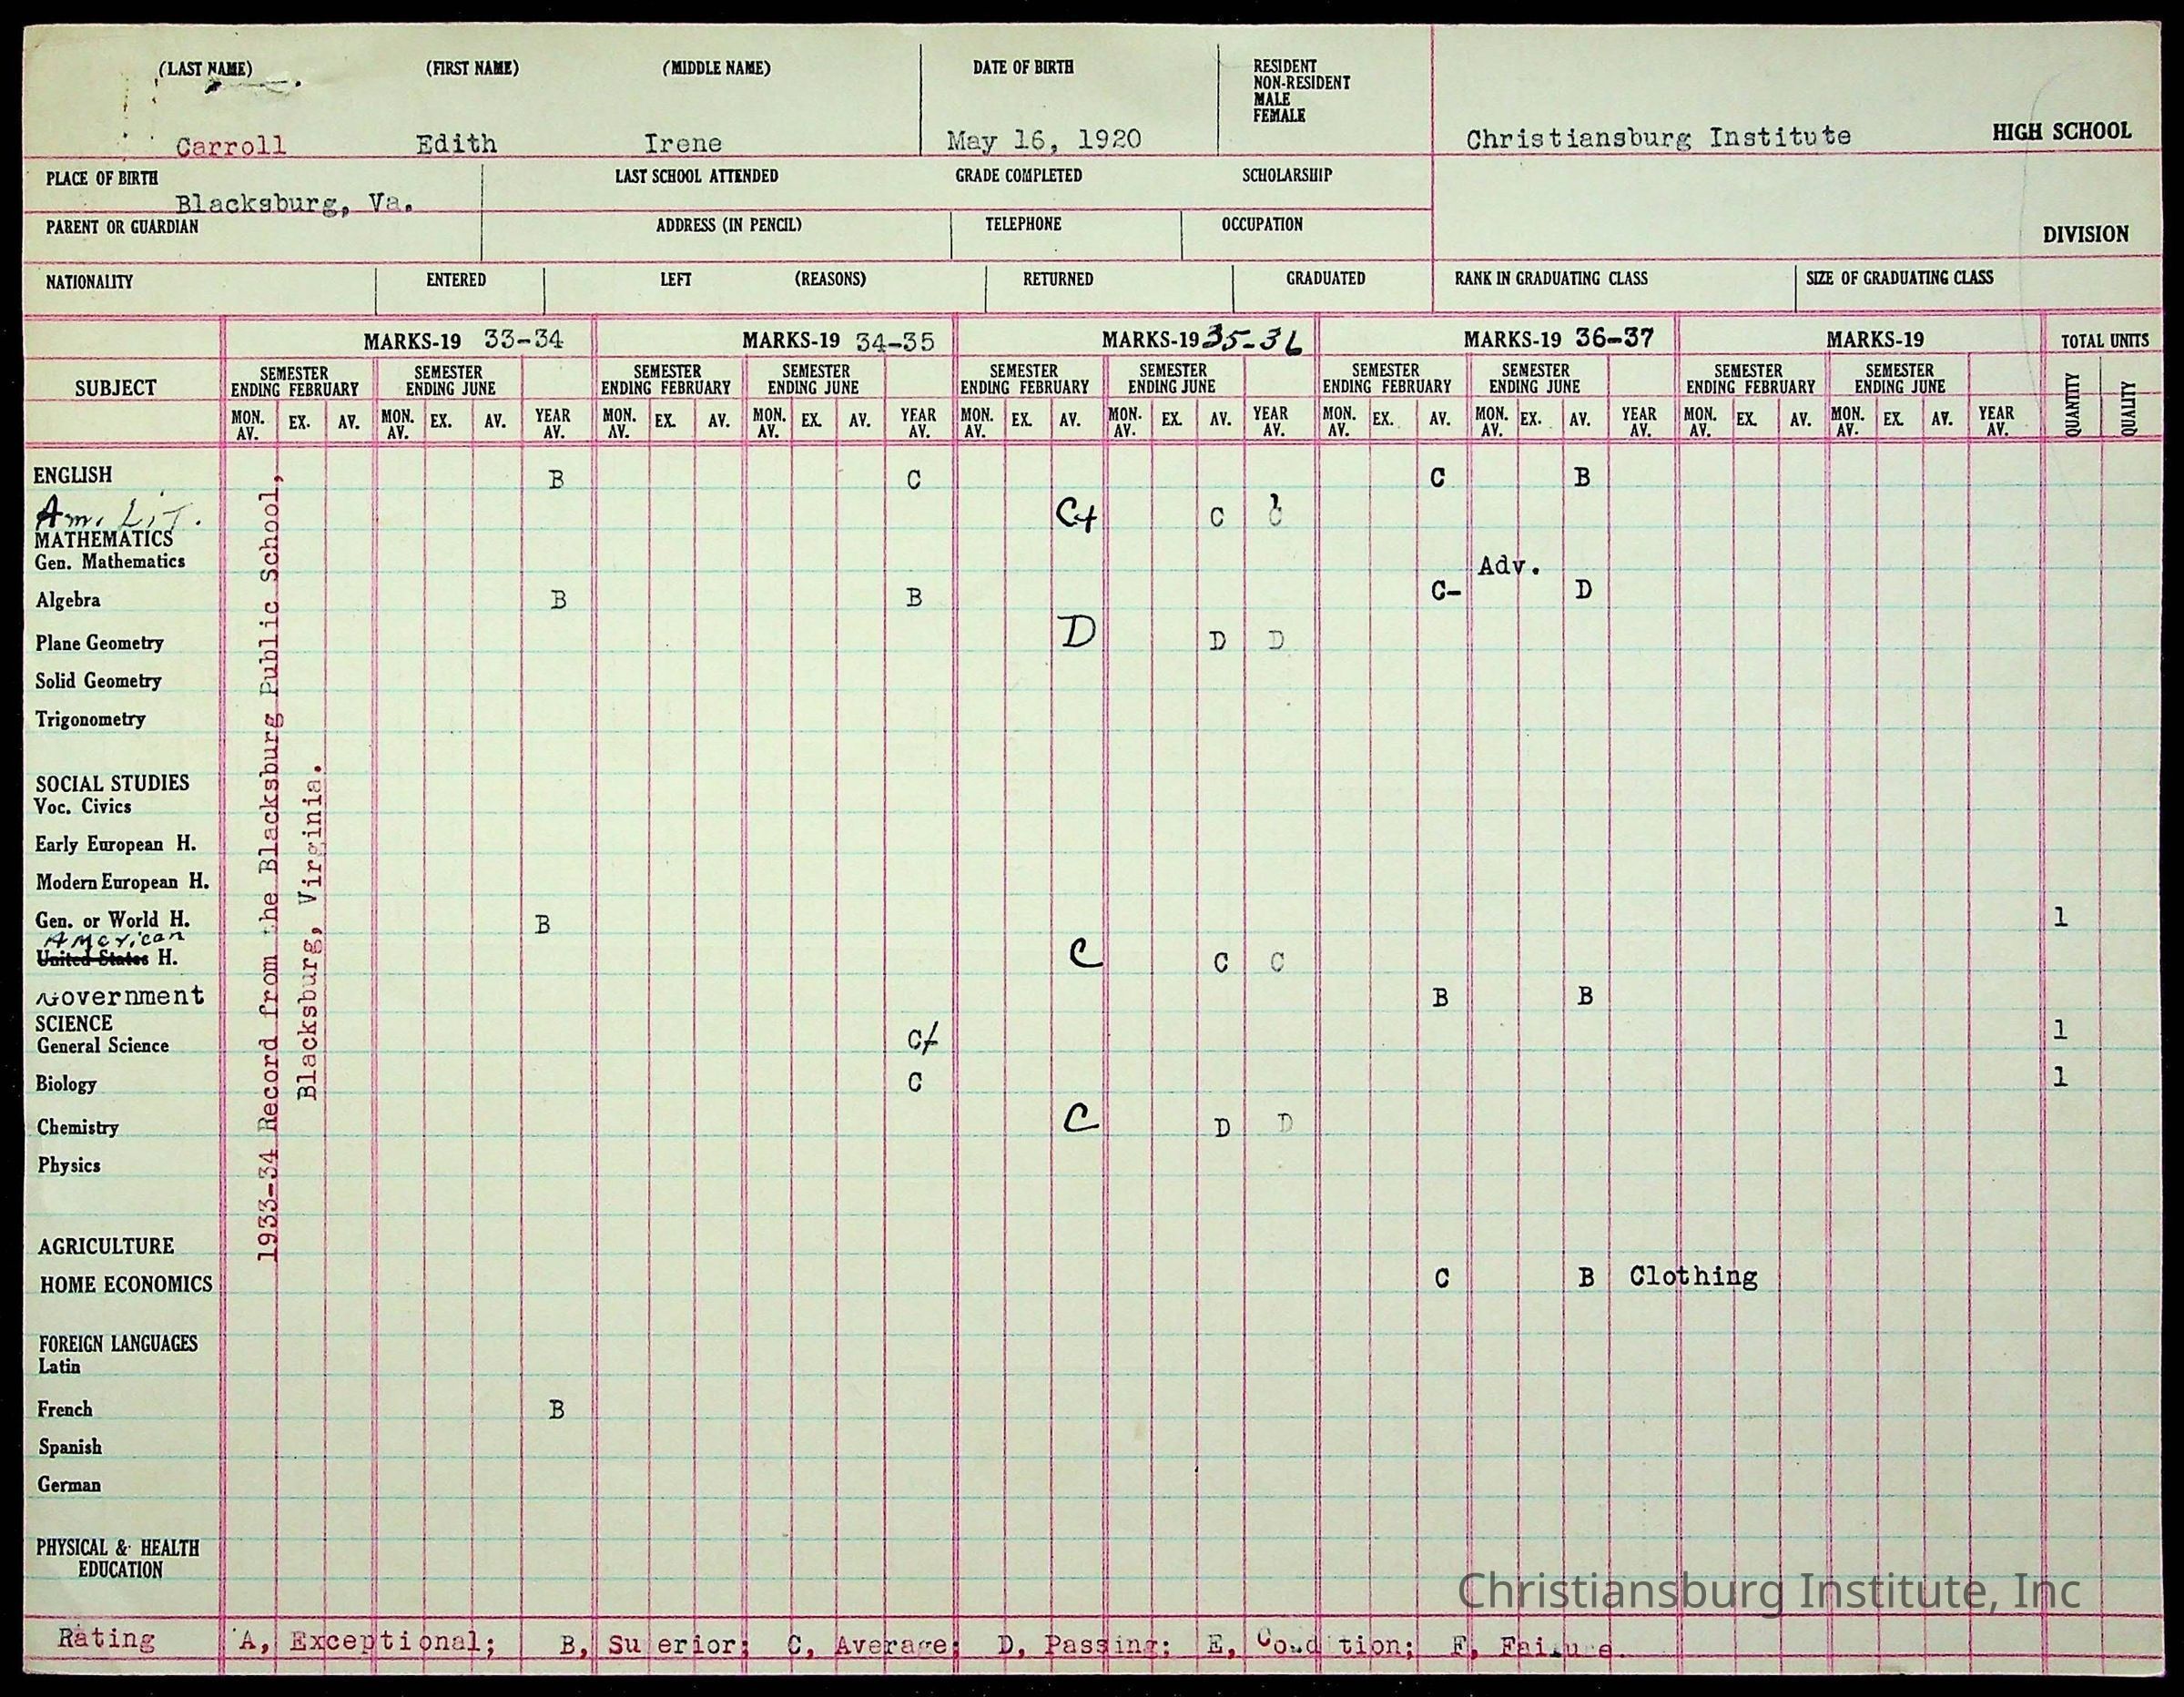 (LAST NAME) (FIRST NAME) (MIDDLE NAME) DATE OF BIRTH RESIDENT
NON-RESIDENT
MALE
FEMALE
Carroll Edith Irene May 16, 1920 Christiansburg Institute HIGH SCHOOL
PLACE OF BIRTH LAST SCHOOL ATTENDED GRADE COMPLETED SCHOLARSHIP
Blacksburg, Va.
PARENT OR GUARDIAN ADDRESS (IN PENCIL) TELEPHONE OCCUPATION DIVISION
NATIONALITY ENTERED LEFT (REASONS) RETURNED GRADUATED RANK IN GRADUATING CLASS SIZE OF GRADUATING CLASS
MARKS-19 33-34 MARKS-19 34-35 MARKS-19 35-36 MARKS-19 36-37 MARKS-19 TOTAL UNITS
SUBJECT SEMESTER SEMESTER SEMESTER SEMESTER SEMESTER SEMESTER SEMESTER SEMESTER SEMESTER SEMESTER
ENDING FEBRUARY ENDING JUNE ENDING FEBRUARY ENDING JUNE ENDING FEBRUARY ENDING JUNE ENDING FEBRUARY ENDING JUNE ENDING FEBRUARY ENDING JUNE QUANTITY QUALITY
MON. AV. EX. AV. MON. AV. EX. AV. YEAR AV. MON. AV. EX. AV. MON. AV. EX. AV. YEAR AV. MON. AV. EX. AV. MON. AV. EX. AV. YEAR AV. MON. AV. EX. AV. MON. AV. EX. AV. YEAR AV. MON. AV. EX. AV. MON. AV. EX. AV. YEAR AV.
1933-34 Record from the Blacksburg Public School,
Blacksburg, Virginia.
ENGLISH B C C B
Am. Lit. C+ C C
MATHEMATICS
Gen. Mathematics Adv.
Algebra B B C- D
Plane Geometry D D D
Solid Geometry
Trigonometry
SOCIAL STUDIES
Voc. Civics
Early European H.
Modern European H.
Gen. or World H. B 1
American
United States H. C C C
Government B B
SCIENCE
General Science C/ 1
Biology C 1
Chemistry C D D
Physics
AGRICULTURE
HOME ECONOMICS C B Clothing
FOREIGN LANGUAGES
Latin
French B
Spanish
German
PHYSICAL & HEALTH
EDUCATION
Christiansburg Institute, Inc
Rating A, Exceptional; B, Su erior; C, Average; D, Passing; E, Cond tion; F, Failure.